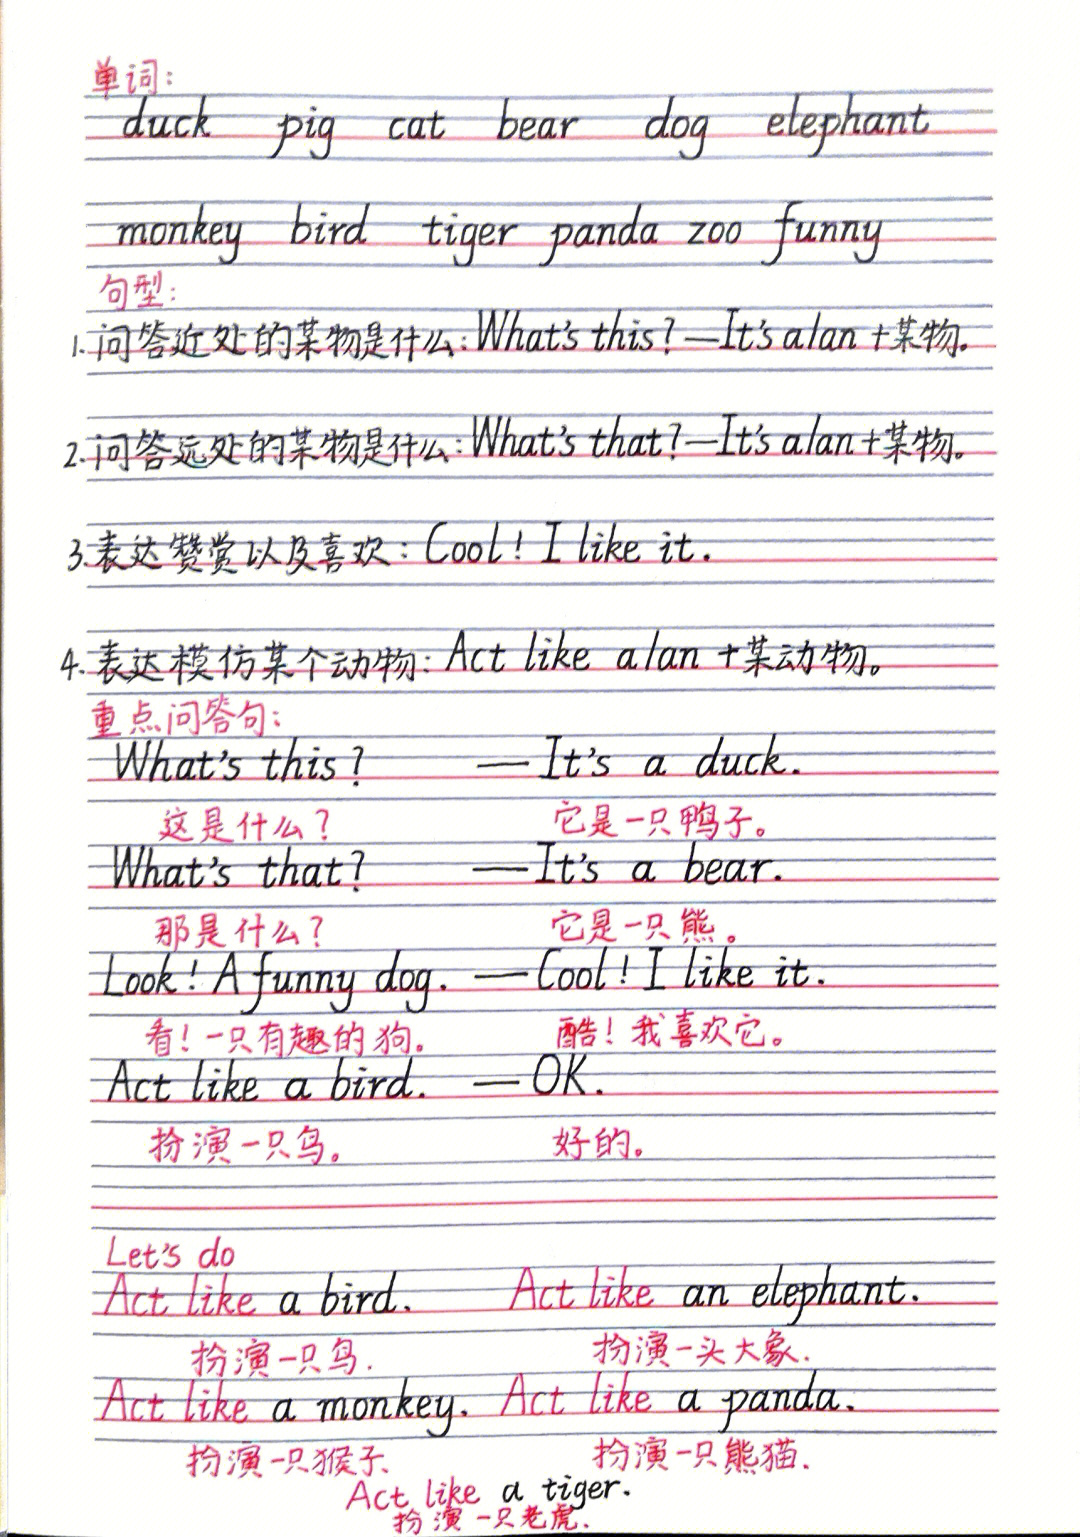 单词:
duck pig cat bear dog elephant
monkey bird tiger panda zoo funny
句型:
1.问答近处的某物是什么:What's this?—It's a/an+某物。
2.问答远处的某物是什么:What's that?—It's a/an+某物。
3.表达赞赏以及喜欢:Cool! I like it.
4.表达模仿某个动物:Act like a/an+某动物。
重点问答句:
What's this? —It's a duck.
这是什么? 它是一只鸭子。
What's that? —It's a bear.
那是什么? 它是一只熊。
Look! A funny dog. —Cool! I like it.
看!一只有趣的狗。 酷!我喜欢它。
Act like a bird. —OK.
扮演一只鸟。 好的。
Let's do
Act like a bird. Act like an elephant.
扮演一只鸟. 扮演一头大象.
Act like a monkey. Act like a panda.
扮演一只猴子. 扮演一只熊猫.
Act like a tiger.
扮演一只老虎.